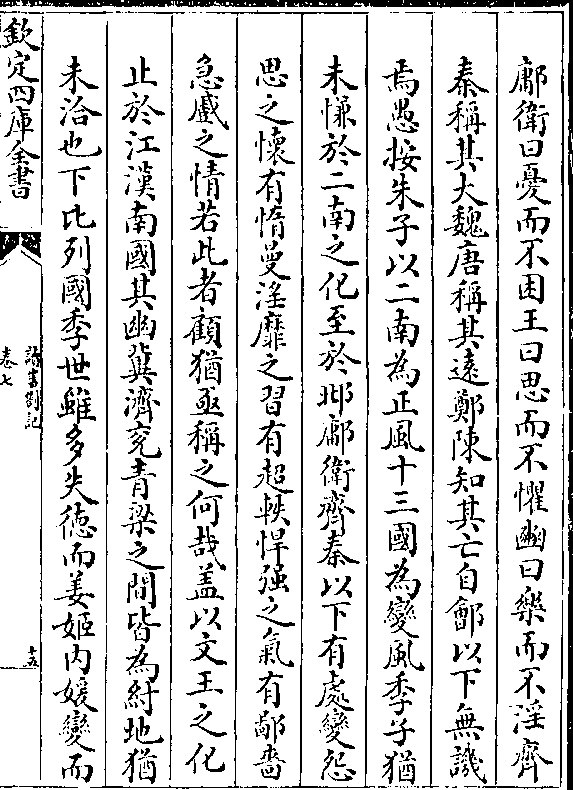 鄘衛曰憂而不困王曰思而不懼豳曰樂而不淫齊
秦稱其大魏唐稱其遠鄭陳知其亡自鄶以下無譏
焉愚按朱子以二南為正風十三國為變風季子猶
未慊於二南之化至於邶鄘衛齊秦以下有處變怨
思之懷有惰曼淫靡之習有超軼悍强之氣有鄙嗇
急慼之情若此者顧猶亟稱之何哉盖以文王之化
止於江漢南國其幽冀濟兖青梁之間皆為紂地猶
未洽也下比列國季世雖多失徳而姜姬内媛變而
欽定四庫全書
讀書劄記
卷七
十五